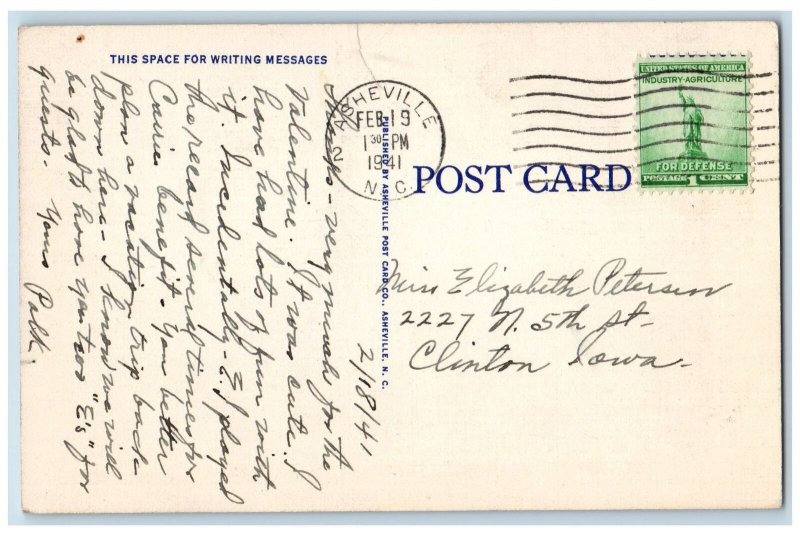 THIS SPACE FOR WRITING MESSAGES
2/18/41
very much for the
Valentine. It was cute. I
have had lots of fun with
it. Incidentally - E. I played
the record several times for
benefit. You better
plan a vacation trip back
down here - I know we will
be glad to have you two "E's" for
guests. Yours
PUBLISHED BY ASHEVILLE POST CARD CO., ASHEVILLE, N. C.
ASHEVILLE
FEB 19
1 30 PM
1941
N.C.
2
POST CARD
UNITED STATES OF AMERICA
INDUSTRY-AGRICULTURE
FOR DEFENSE
POSTAGE 1 CENT
Miss Elizabeth Petersen
2227 N. 5th St-
Clinton Iowa-